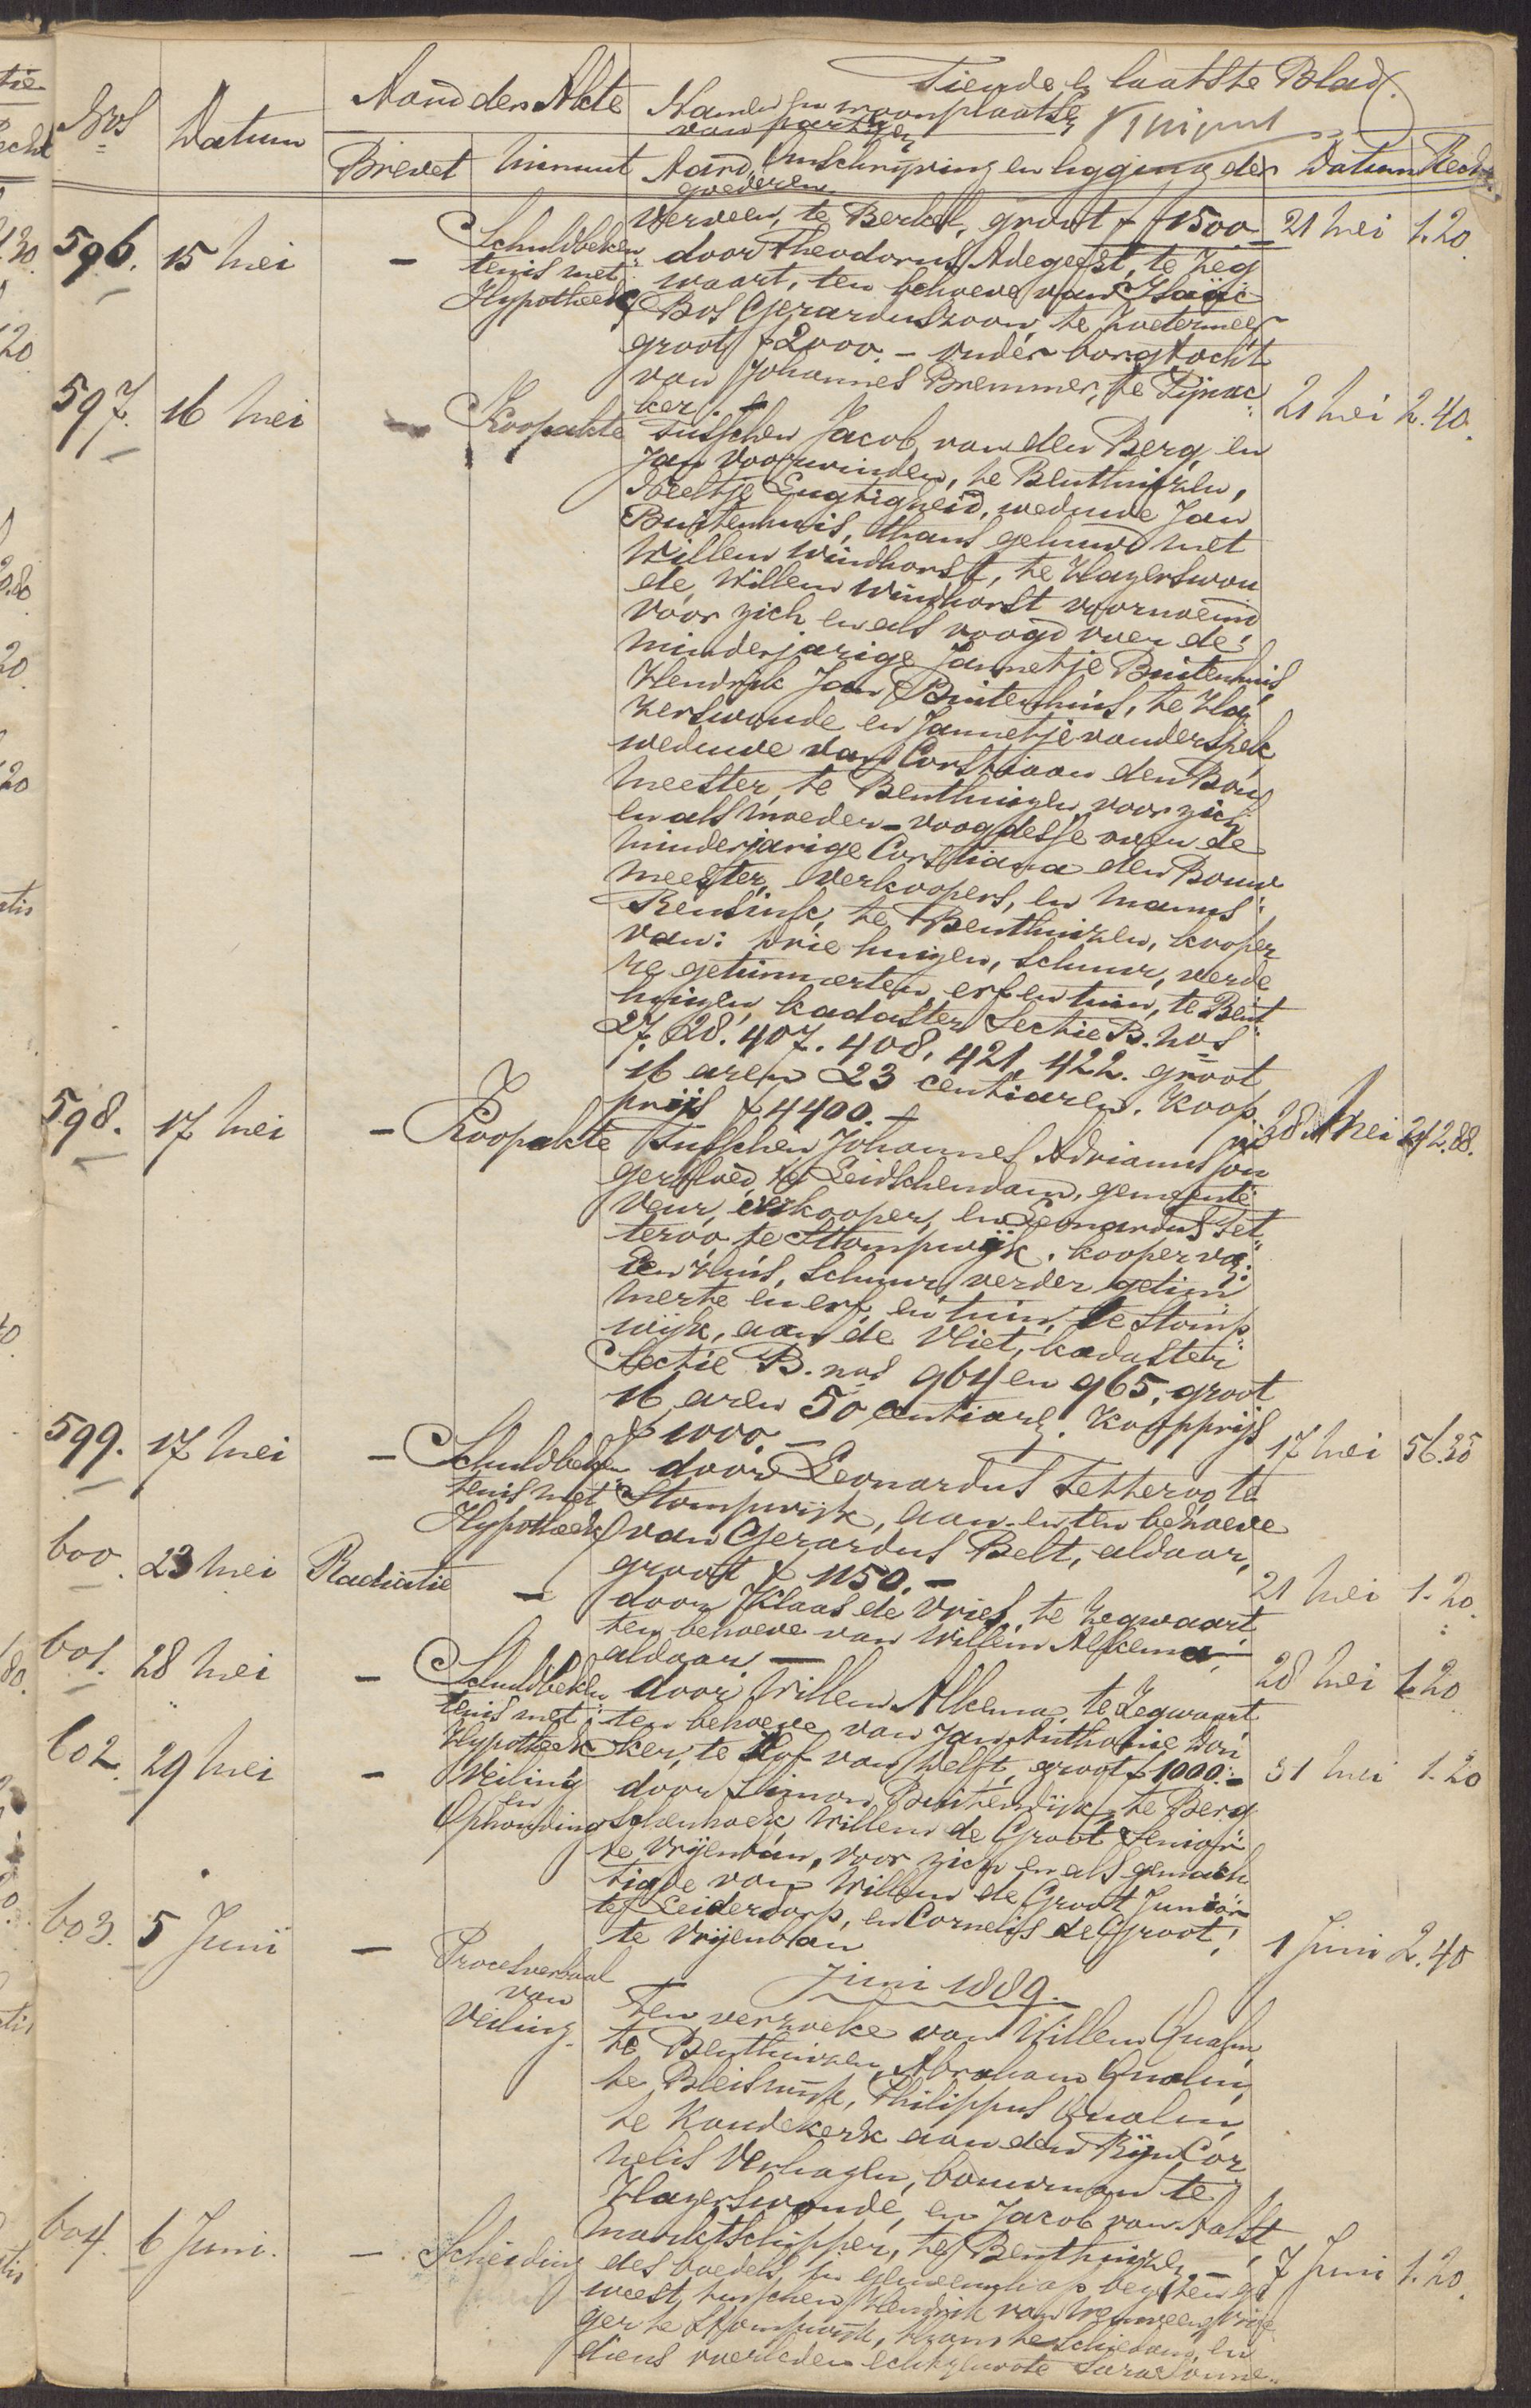 Tiende & laatste Blad.
Nos Datum Aard der Akte Namen en woonplaatsen
van partijen
Brevet Minuut Aard, Omschrijving en ligging der Datum Recht
goederen
Verveen, te Berkel, groot f 1500.- 21 Mei 1.20
596. 15 Mei - Schuldbeken door Theodorus Adegeest, te Zeg
tenis met waart, ten behoeve van Isaäc
Hypotheek Bos Gerarduszoon, te Zoetermeer
groot f 2000.- onder borgtocht
van Johannes Bremmer, te Pijnac
ker. - 21 Mei 2.40.
597. 16 Mei - Koopakte Tusschen Jacob van den Berg en
Jan Voorwinden, te Benthuizen,
Neeltje Eugtigheid, weduwe Jan
Buitenhuis, thans gehuwd met
Willem Windhorst, te Hazerswou
de, Willem Windhorst voornoemd
voor zich en als voogd over de
minderjarige Jannetje Buitenhuis,
Hendrik Jan Buitenhuis, te Ha
zerswoude en Jannetje van der Spek
weduwe van Corstiaan den Bouw
meester, te Benthuizen, voor zich
en als moeder-voogdesse over de
minderjarige Corstiana den Bouw
meester, verkoopers, en Manus
Rensink, te Benthuizen, kooper
van: drie huizen, schuur, verde
re getimmerten, erf en tuin, te Bent
huizen, kadaster Sectie B. nos
27. 28. 407. 408, 421, 422. groot
16 aren 23 centiaren. Koop
prijs f 4400.- 28 Mei 242.88.
598. 17 Mei - Koopakte Tusschen Johannes Adrianus Jon
gerbloed, te Leidschendam, gemeente
Veur, verkooper, en Leonardus Tet
teroo te Stompwijk, kooper van:
Een Huis, schuur, verder getim
merte en erf, en tuin, te Stomp
wijk, aan de Vliet, kadaster
Sectie B. nos 964 en 965, groot
16 aren 50 centiare. Koopprijs
f 1000.- 17 Mei 56.35
599. 17 Mei - Schuldbeken door Leonardus Tetteroo, te
tenis met Stompwijk, aan en ten behoeve
Hypotheek van Gerardus Belt, aldaar,
groot f 1150.- 21 Mei 1.20.
600. 23 Mei Radiatie - door Klaas de Vries, te Zegwaart
ten behoeve van Willem Alkema,
aldaar.- 28 Mei 1.20
601. 28 Mei - Schuldbeken door Willem Alkema, te Zegwaart
tenis met ten behoeve van Jan Anthonie Don
Hypotheek ker, te Hof van Delft, groot f 1000.- 31 Mei 1.20
602. 29 Mei - Veiling door Simon Buitendijk, te Berg
en schenhoek, Willem de Groot Senior
Ophouding te Vrijenban, voor zich en als gemach
tigde van Willem de Groot Junior
te Leiderdorp, en Cornelis de Groot,
te Vrijenban 1 Juni 2.40
Juni 1889.
603. 5 Juni - Procesverbaal Ten verzoeke van Willem Qualm,
van te Benthuizen, Abraham Qualm,
Veiling. te Bleiswijk, Philippus Qualm,
te Koudekerk aan den Rijn, Cor
nelis Verhagen, bouwman te
Hazerswoude, en Jacob van Aalst
marktschipper, te Benthuizen - 7 Juni 1.20.
604. 6 Juni. - Scheiding des boedels, in gemeenschap bezeten ge
weest tusschen Hendrik van
ger te Stompwijk, thans te Schiedam, en
diens overleden echtgenoote Sara